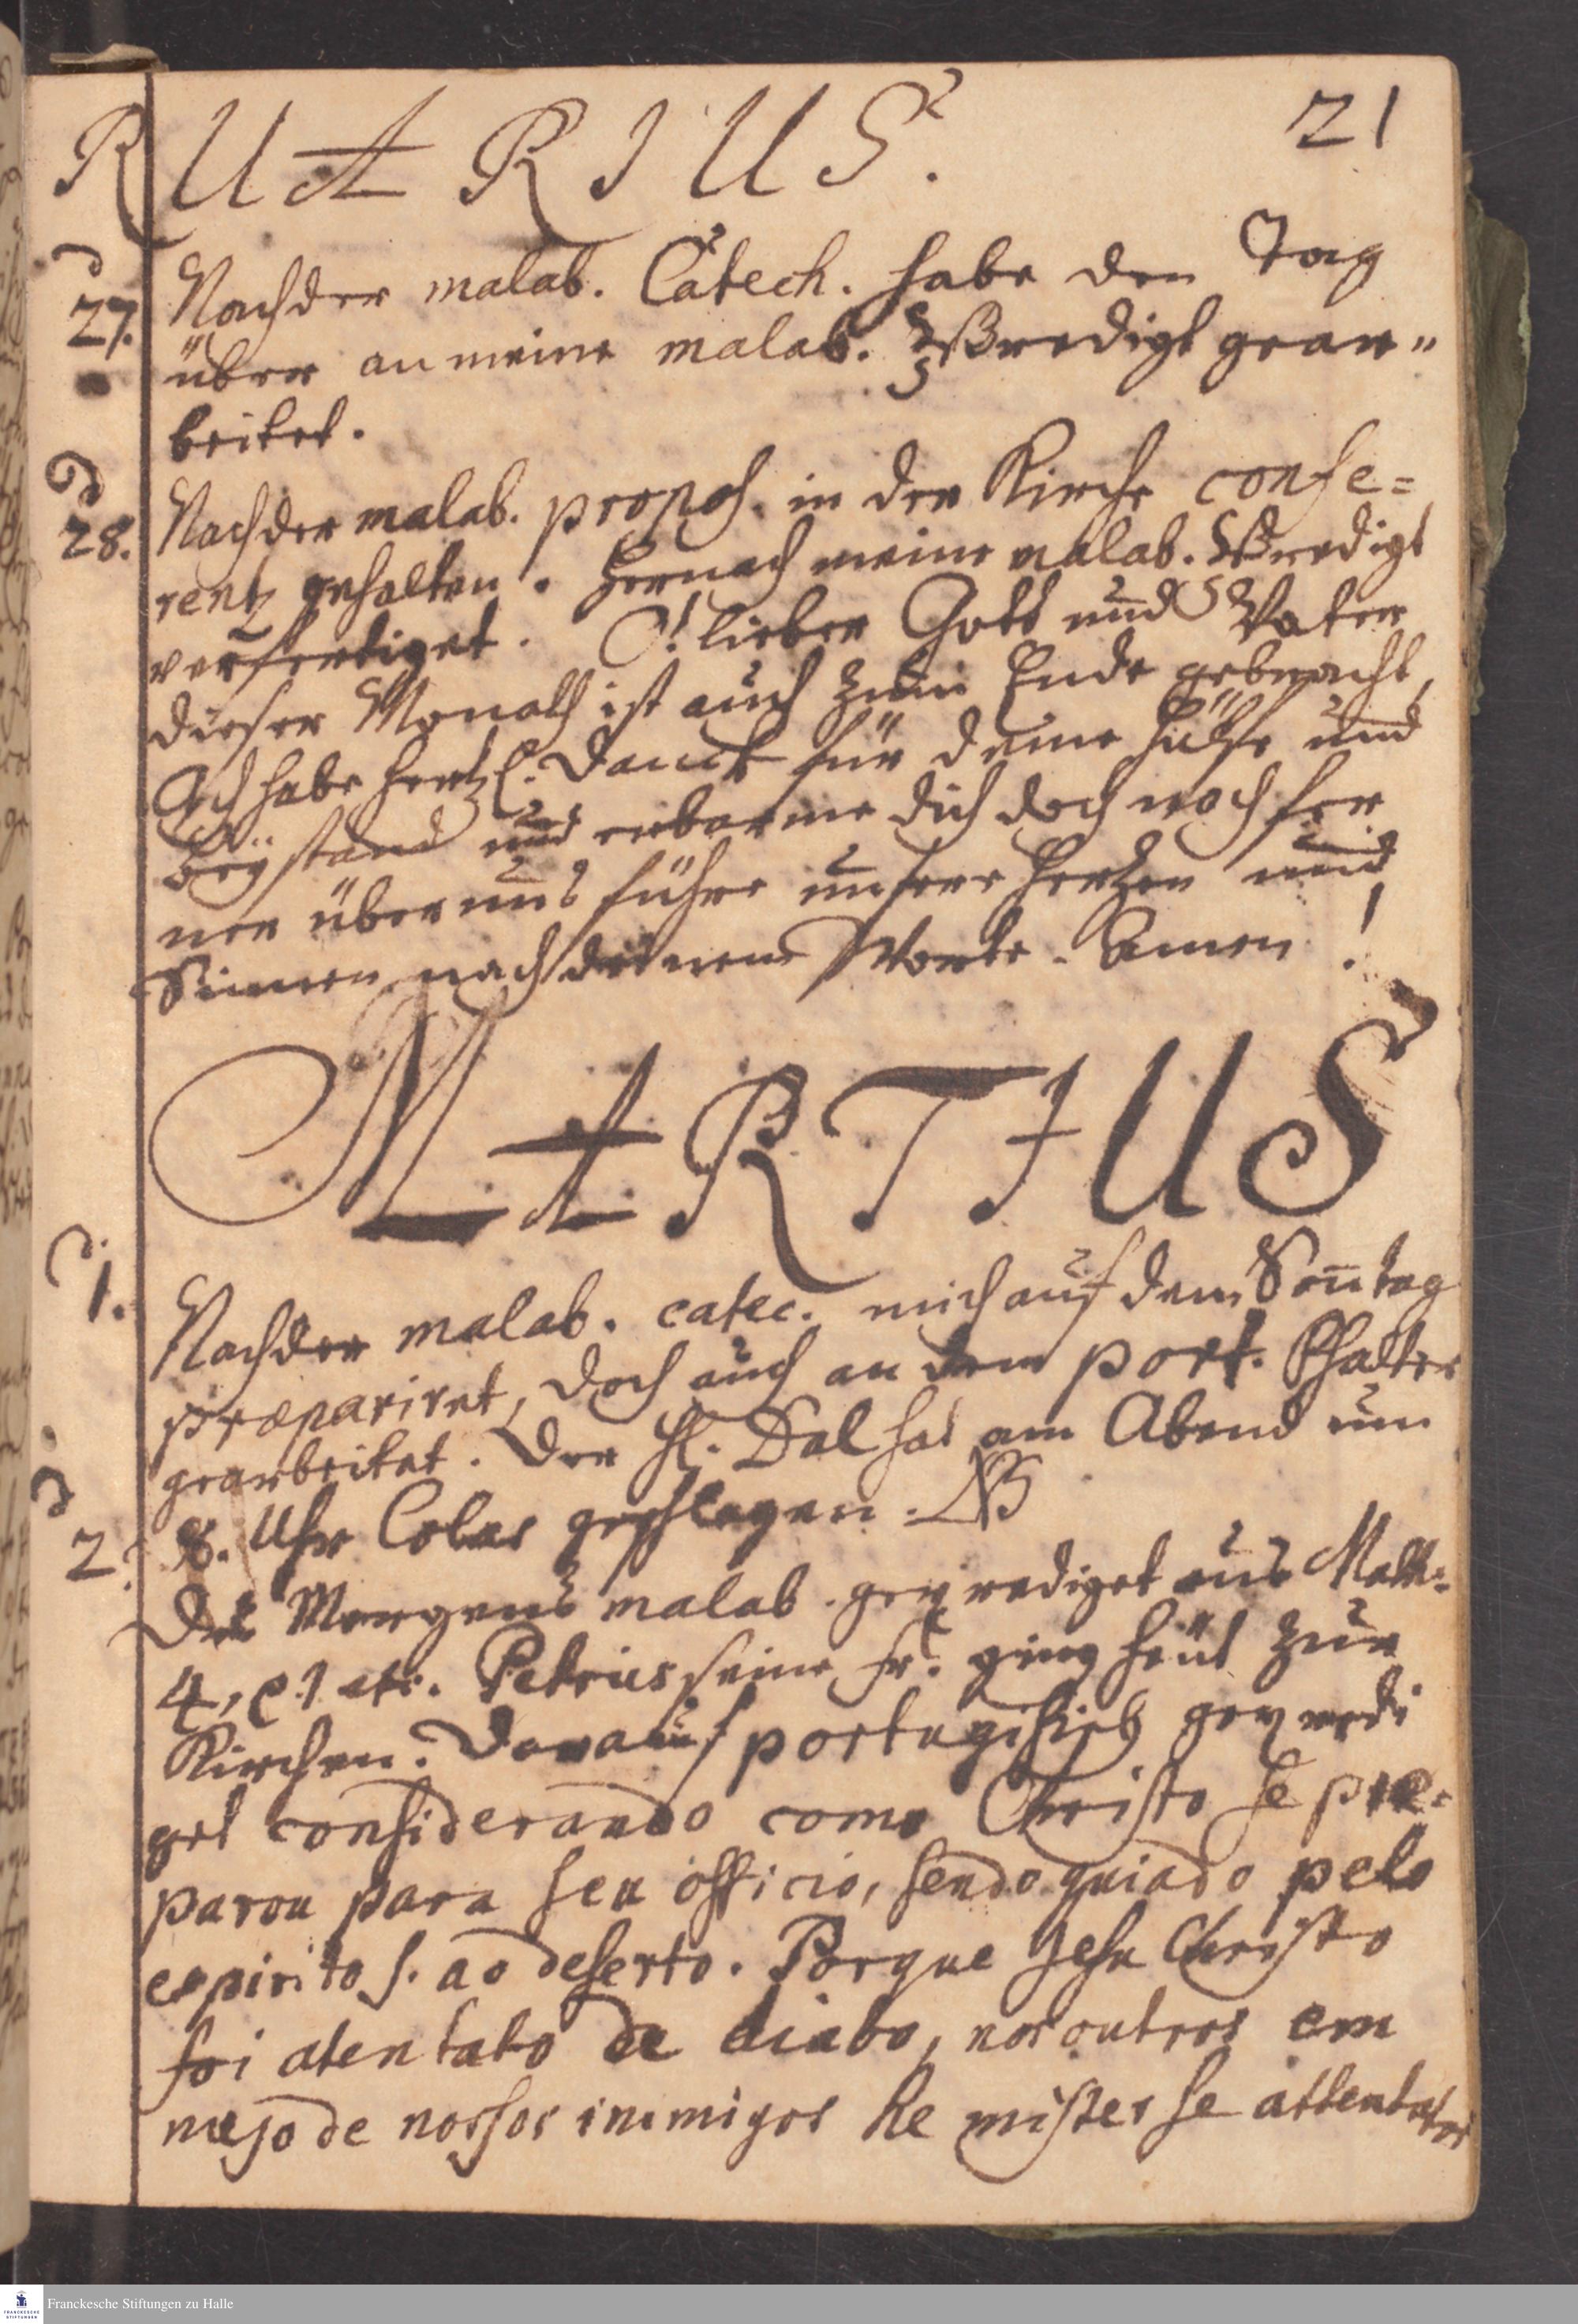 21
RUARIUS.
D
27. Nach der malab. Catech. habe den Tag
über an meine malab. Predigt gear"
beitet.
D
28. Nach der malab. propos. in der Kirche confe=
rentz gehalten. Hernach meine malab. Predigt
verfertiget. O! lieber Gott und Vater
dieser Monath ist auch zum Ende gebracht,
Ach habe hertzl. Danck für deine Hülfe und
Beystand und erbarme dich doch noch fer
ner über uns führe unsere Hertzen und
Sinnen nach deinem Worte. Amen!
MARTIUS
D
1. Nach der malab. catec. mich auf dem Sontag
præpariret, doch auch an dem port. Psalter
gearbeitet. Der H. Dal hat am Abend um
8. Uhr geschlagen. NB
D
2. Des Morgens malab. geprediget aus Matth:
4, etc. Petrus seine fr. ging heut zur
Kirchen. Darauf portugisisch gepredi
get considerando como Christo se pre=
parou para seu officio, sendo guiado pelo
espirito s. ao deserto. Porque Jesu Christo
foi atentato de diabo, nos outros em
mejo de nossos inimigos he mister se attentatos
Franckesche Stiftungen zu Halle